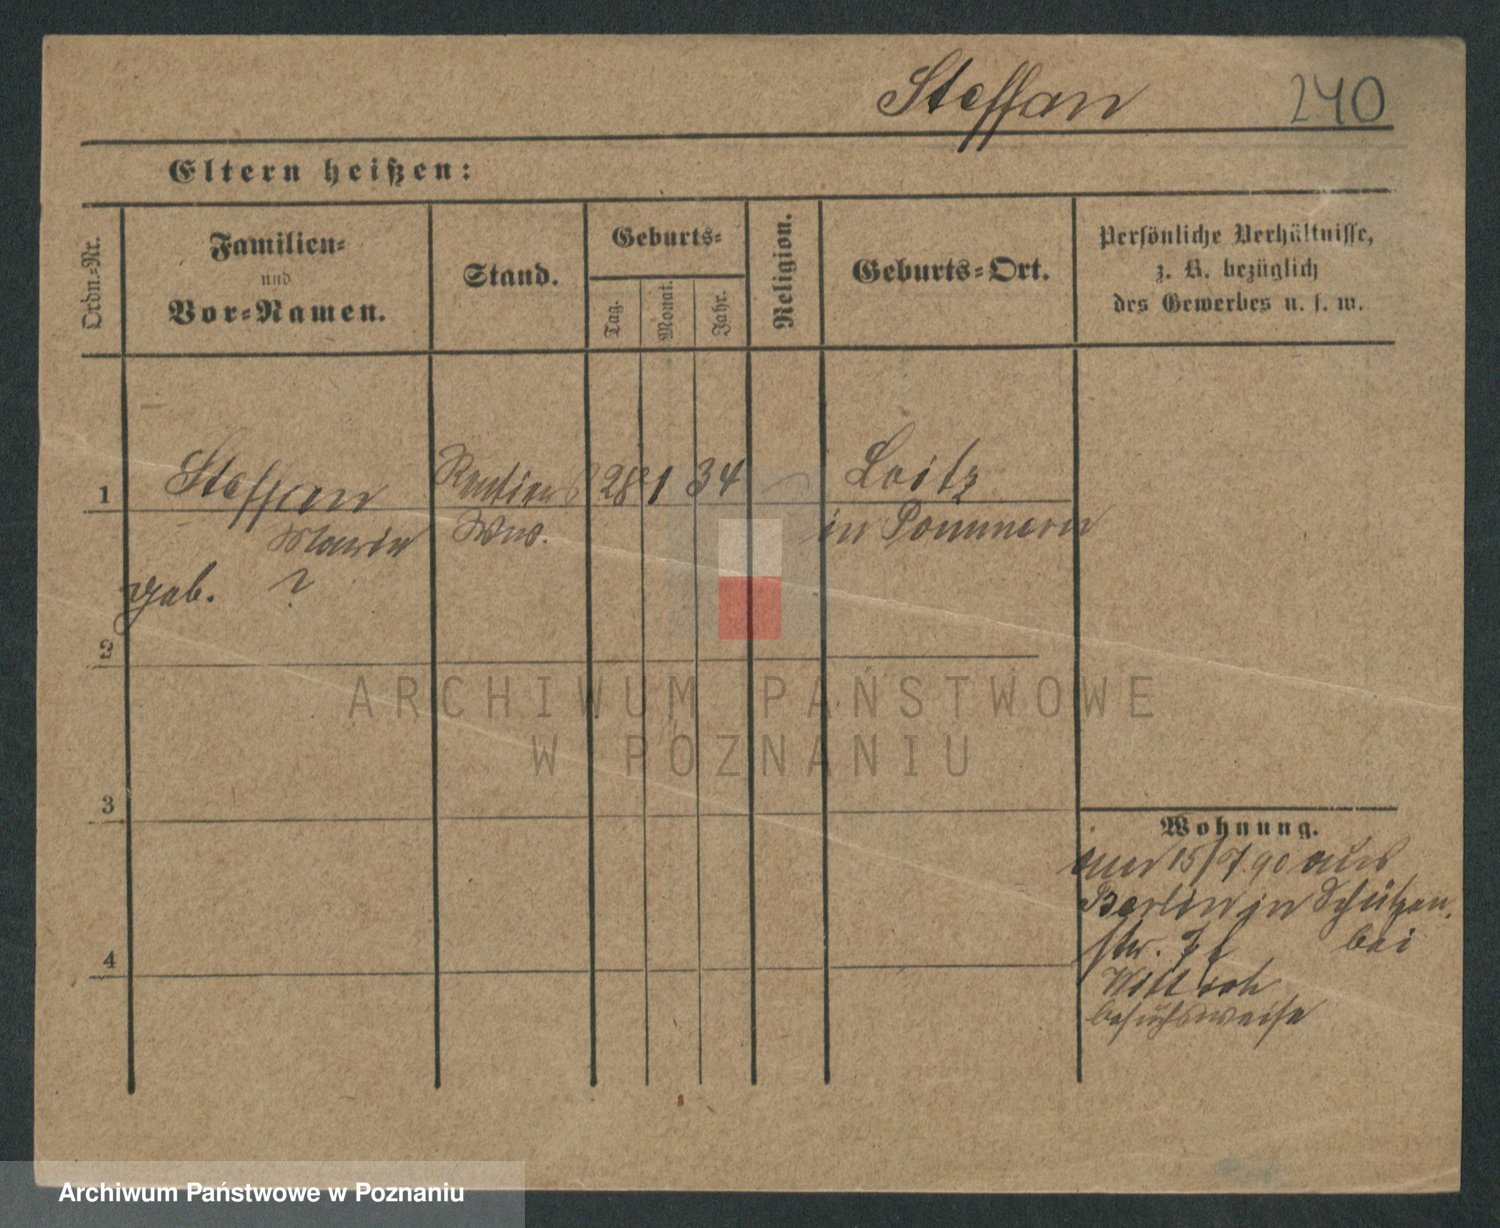 Steffan 240
Eltern heißen:
Ordn.-Nr.
Familien-
und
Vor-Namen.
Stand.
Geburts-
Tag.
Monat.
Jahr.
Religion.
Geburts-Ort.
Persönliche Verhältnisse,
z. B. bezüglich
des Gewerbes u. s. w.
1 Steffan Rentiers 28 1 34 Loitz
Marie Wwe. in Pommern
geb. ?
2
3
4
Wohnung.
am 15/7 90 aus
Berlin in Schützen
str. bei
Wittich
besuchsweise
ARCHIWUM PAŃSTWOWE
W POZNANIU
Archiwum Państwowe w Poznaniu